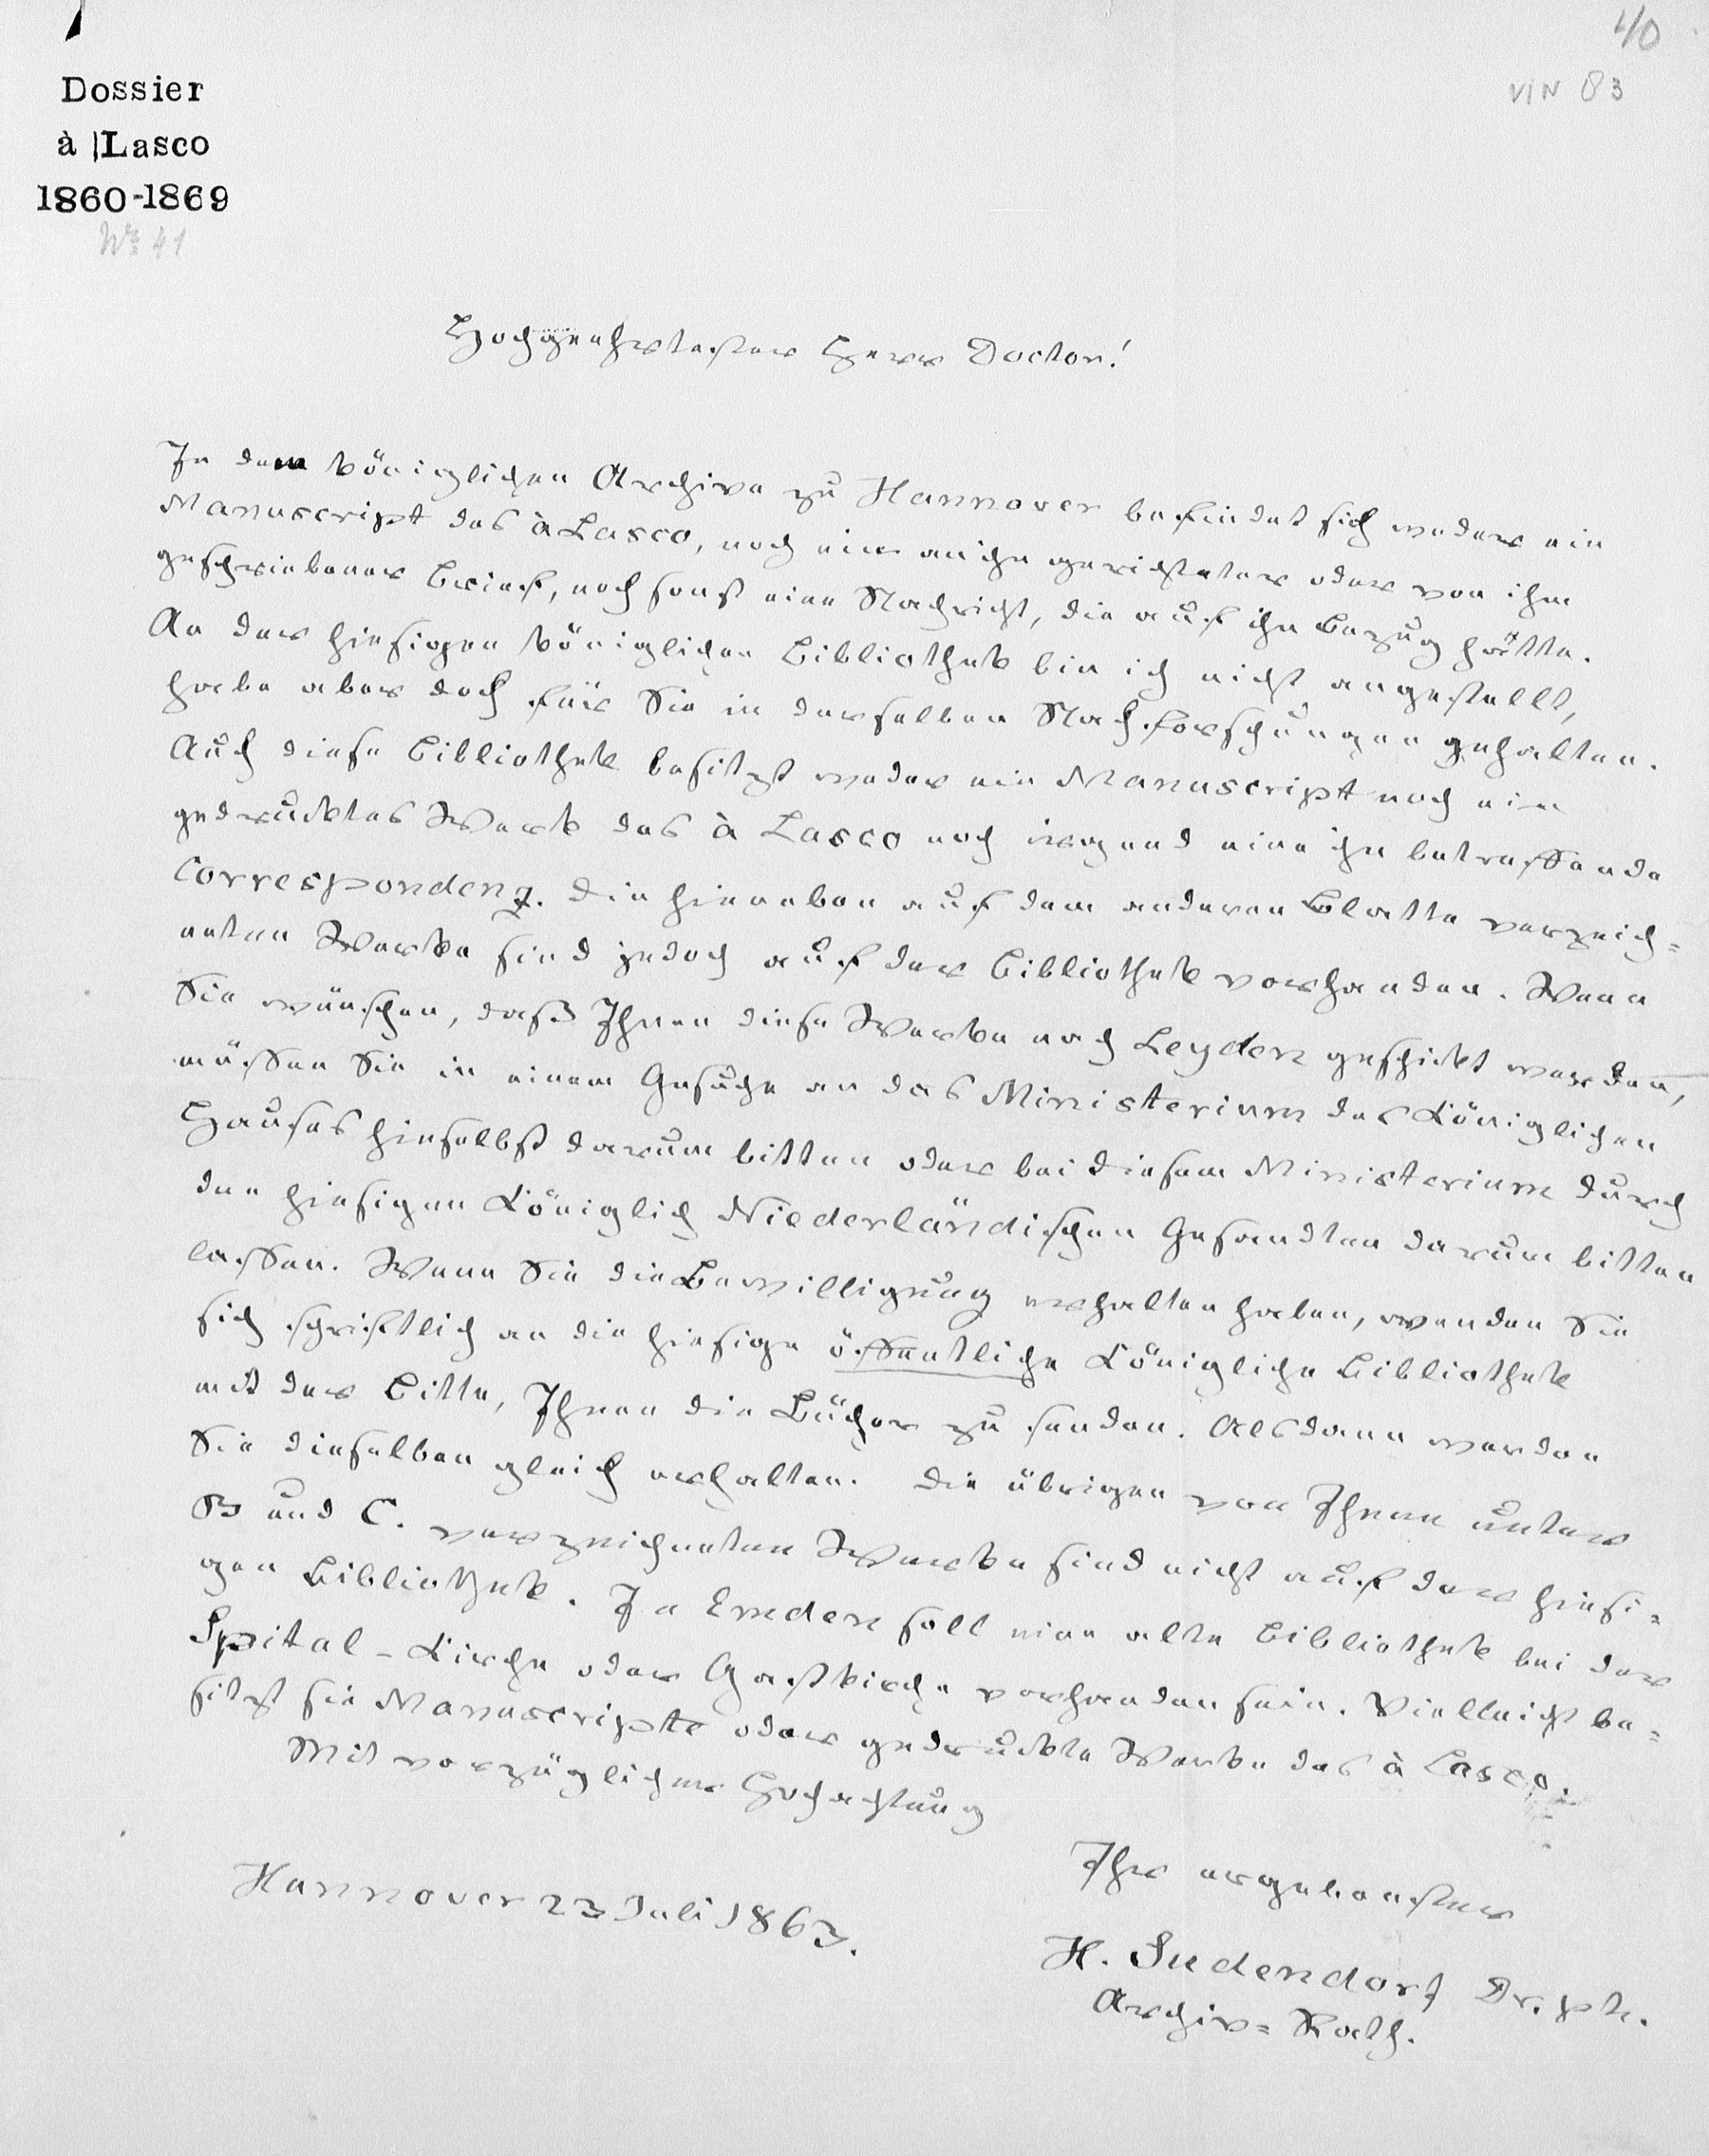 40
VIN 83
Dossier
à Lasco
1860-1869
No 41
Hochgeehrtester Herr Doctor!
In dem königlichen Archive zu Hannover befindet sich weder ein
Manuscript des à Lasco, noch ein an ihn gerichteter oder von ihm
geschriebener Brief, noch sonst eine Nachricht, die auf ihn Bezug hätte.
An der hiesigen königlichen Bibliothek bin ich nicht angestellt,
habe aber doch für Sie in derselben Nachforschungen gehalten.
Auch diese Bibliothek besitzt weder ein Manuscript noch ein
gedrucktes Werk des à Lasco noch irgend eine ihn betreffende
Correspondenz. Die hieneben auf dem anderen Blatte verzeich=
neten Werke sind jedoch auf der Bibliothek vorhanden. Wenn
Sie wünschen, daß Ihnen diese Werke nach Leyden geschickt werden,
müssen Sie in einem Gesuche an das Ministerium des Königlichen
Hauses hieselbst darum bitten oder bei diesem Ministerium durch
den hiesigen Königlich Niederländischen Gesandten darum bitten
lassen. Wenn Sie die Bewilligung erhalten haben, wenden Sie
sich schriftlich an die hiesige öffentliche Königliche Bibliothek
mit der Bitte, Ihnen die Bücher zu senden. Alsdann werden
Sie dieselben gleich erhalten. Die übrigen von Ihnen unter
B und C. verzeichneten Werke sind nicht auf der hiesi=
gen Bibliothek. In Emden soll eine alte Bibliothek bei der
Spital-Kirche oder Gastkirche vorhanden sein. Vielleicht be=
sitzt sie Manuscripte oder gedruckte Werke des à Lasco.
Mit vorzüglicher Hochachtung
Ihr ergebenster
Hannover 23 Juli 1863.
H. Sudendorf Dr. ph.
Archiv=Rath.